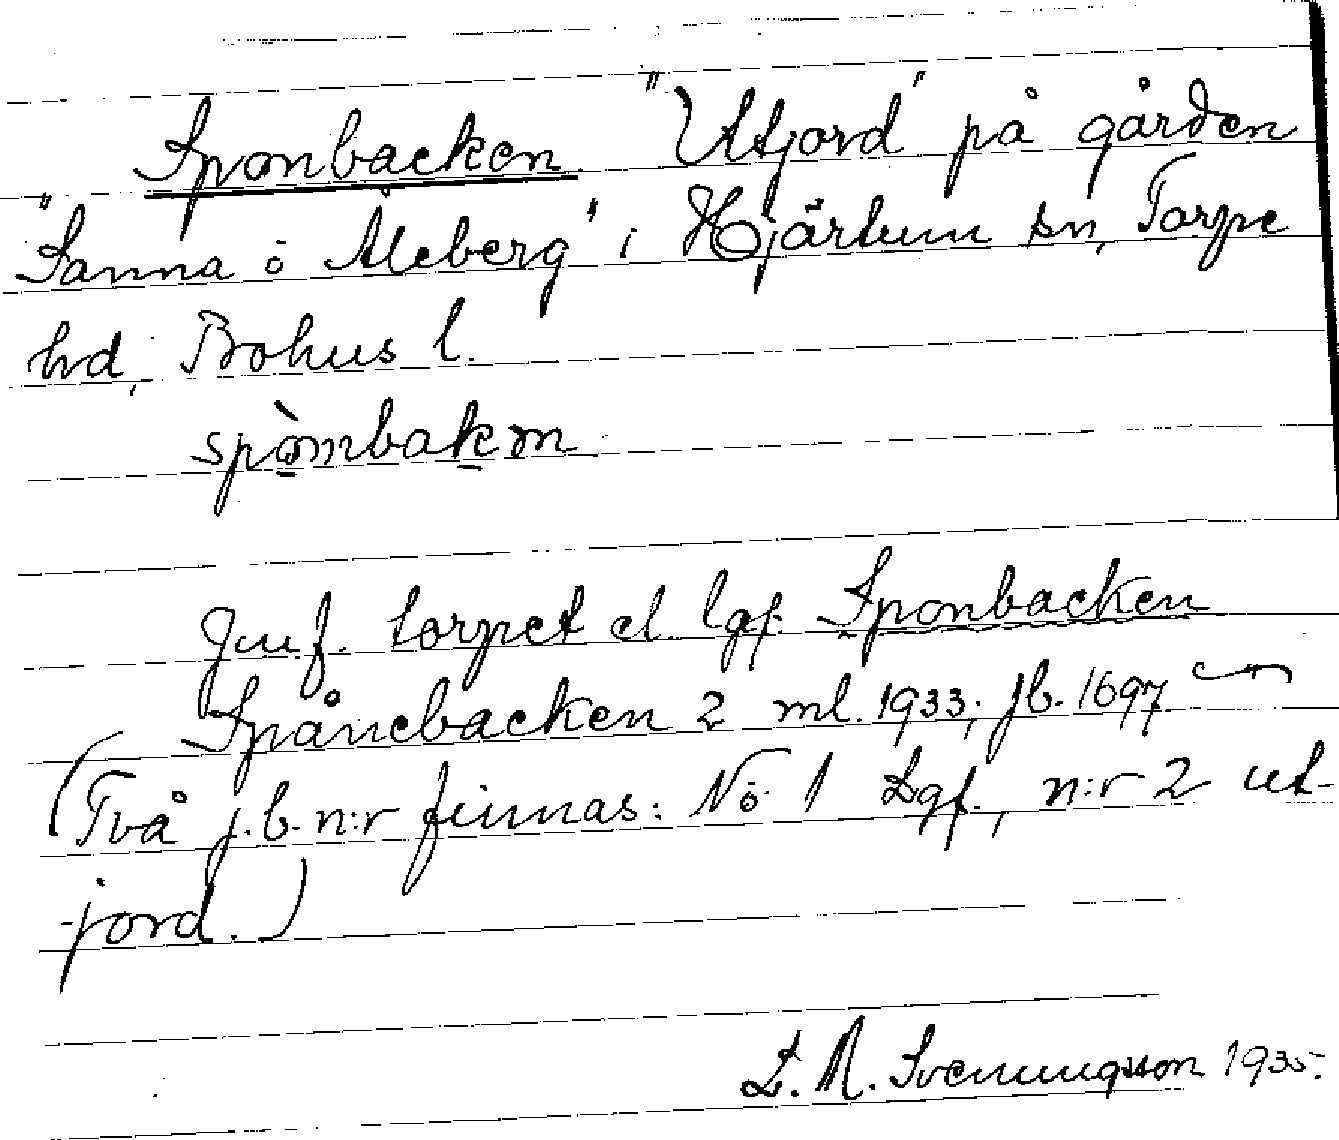 Sponbacken "Utjord" på gården
"Sanna ö Åleberg" i Hjärtum sn, Torpe
hd, Bohus l.
spòmbakɘn
Jmf. torpet el. lgf. Sponbacken
Spånebacken 2 ml. 1933, jb. 1697
(Två j.b. n:r finnas: No 1 Lgf., n:r 2 ut-
jord.)
L. M. Svenungsson 1935.